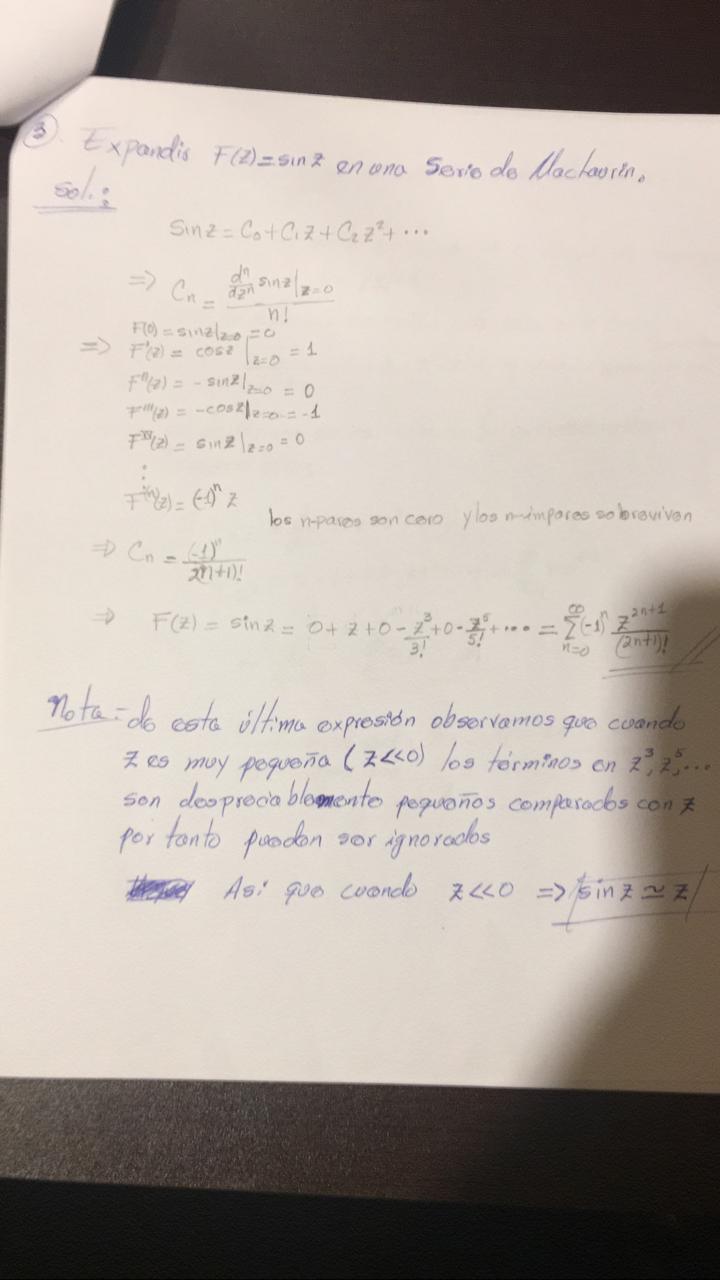 ③. Expandir F(z)=sinz en una Serie de Maclaurin.
Sol.:
Sinz = C₀+C₁z+C₂z²+⋯
=> Cₙ = (dⁿ/dzⁿ sinz|z=0)/n!
F(0) = sinz|z=0 = 0
=> F'(z) = cosz|z=0 = 1
F''(z) = -sinz|z=0 = 0
F'''(z) = -cosz|z=0 = -1
F^IV(z) = sinz|z=0 = 0
⋮
F⁽ⁿ⁾(z) = (-1)ⁿ z
los n-pares son cero y los n-impares sobreviven
=> Cₙ = (-1)ⁿ/2(n+1)!
=> F(z) = sinz = 0+z+0-z³/3!+0-z⁵/5!+⋯ = ∑n=0^∞ (-1)ⁿ z²ⁿ⁺¹/(2n+1)!
Nota:- de esta última expresión observamos que cuando
z es muy pequeña (z<<0) los términos en z³, z⁵,⋯
son despreciablemente pequeños comparados con z
por tanto pueden ser ignorados
Asi que cuando z<<0 => sinz ≃ z